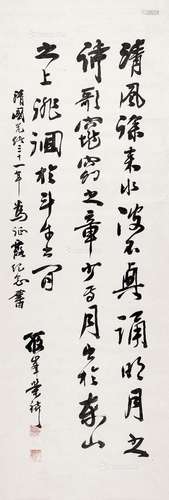 清風徐来水波不興誦明月之
詩歌窈窕之章少焉月出於東山
之上徘徊於斗牛之間
清國光緒三十一年為征露紀念書